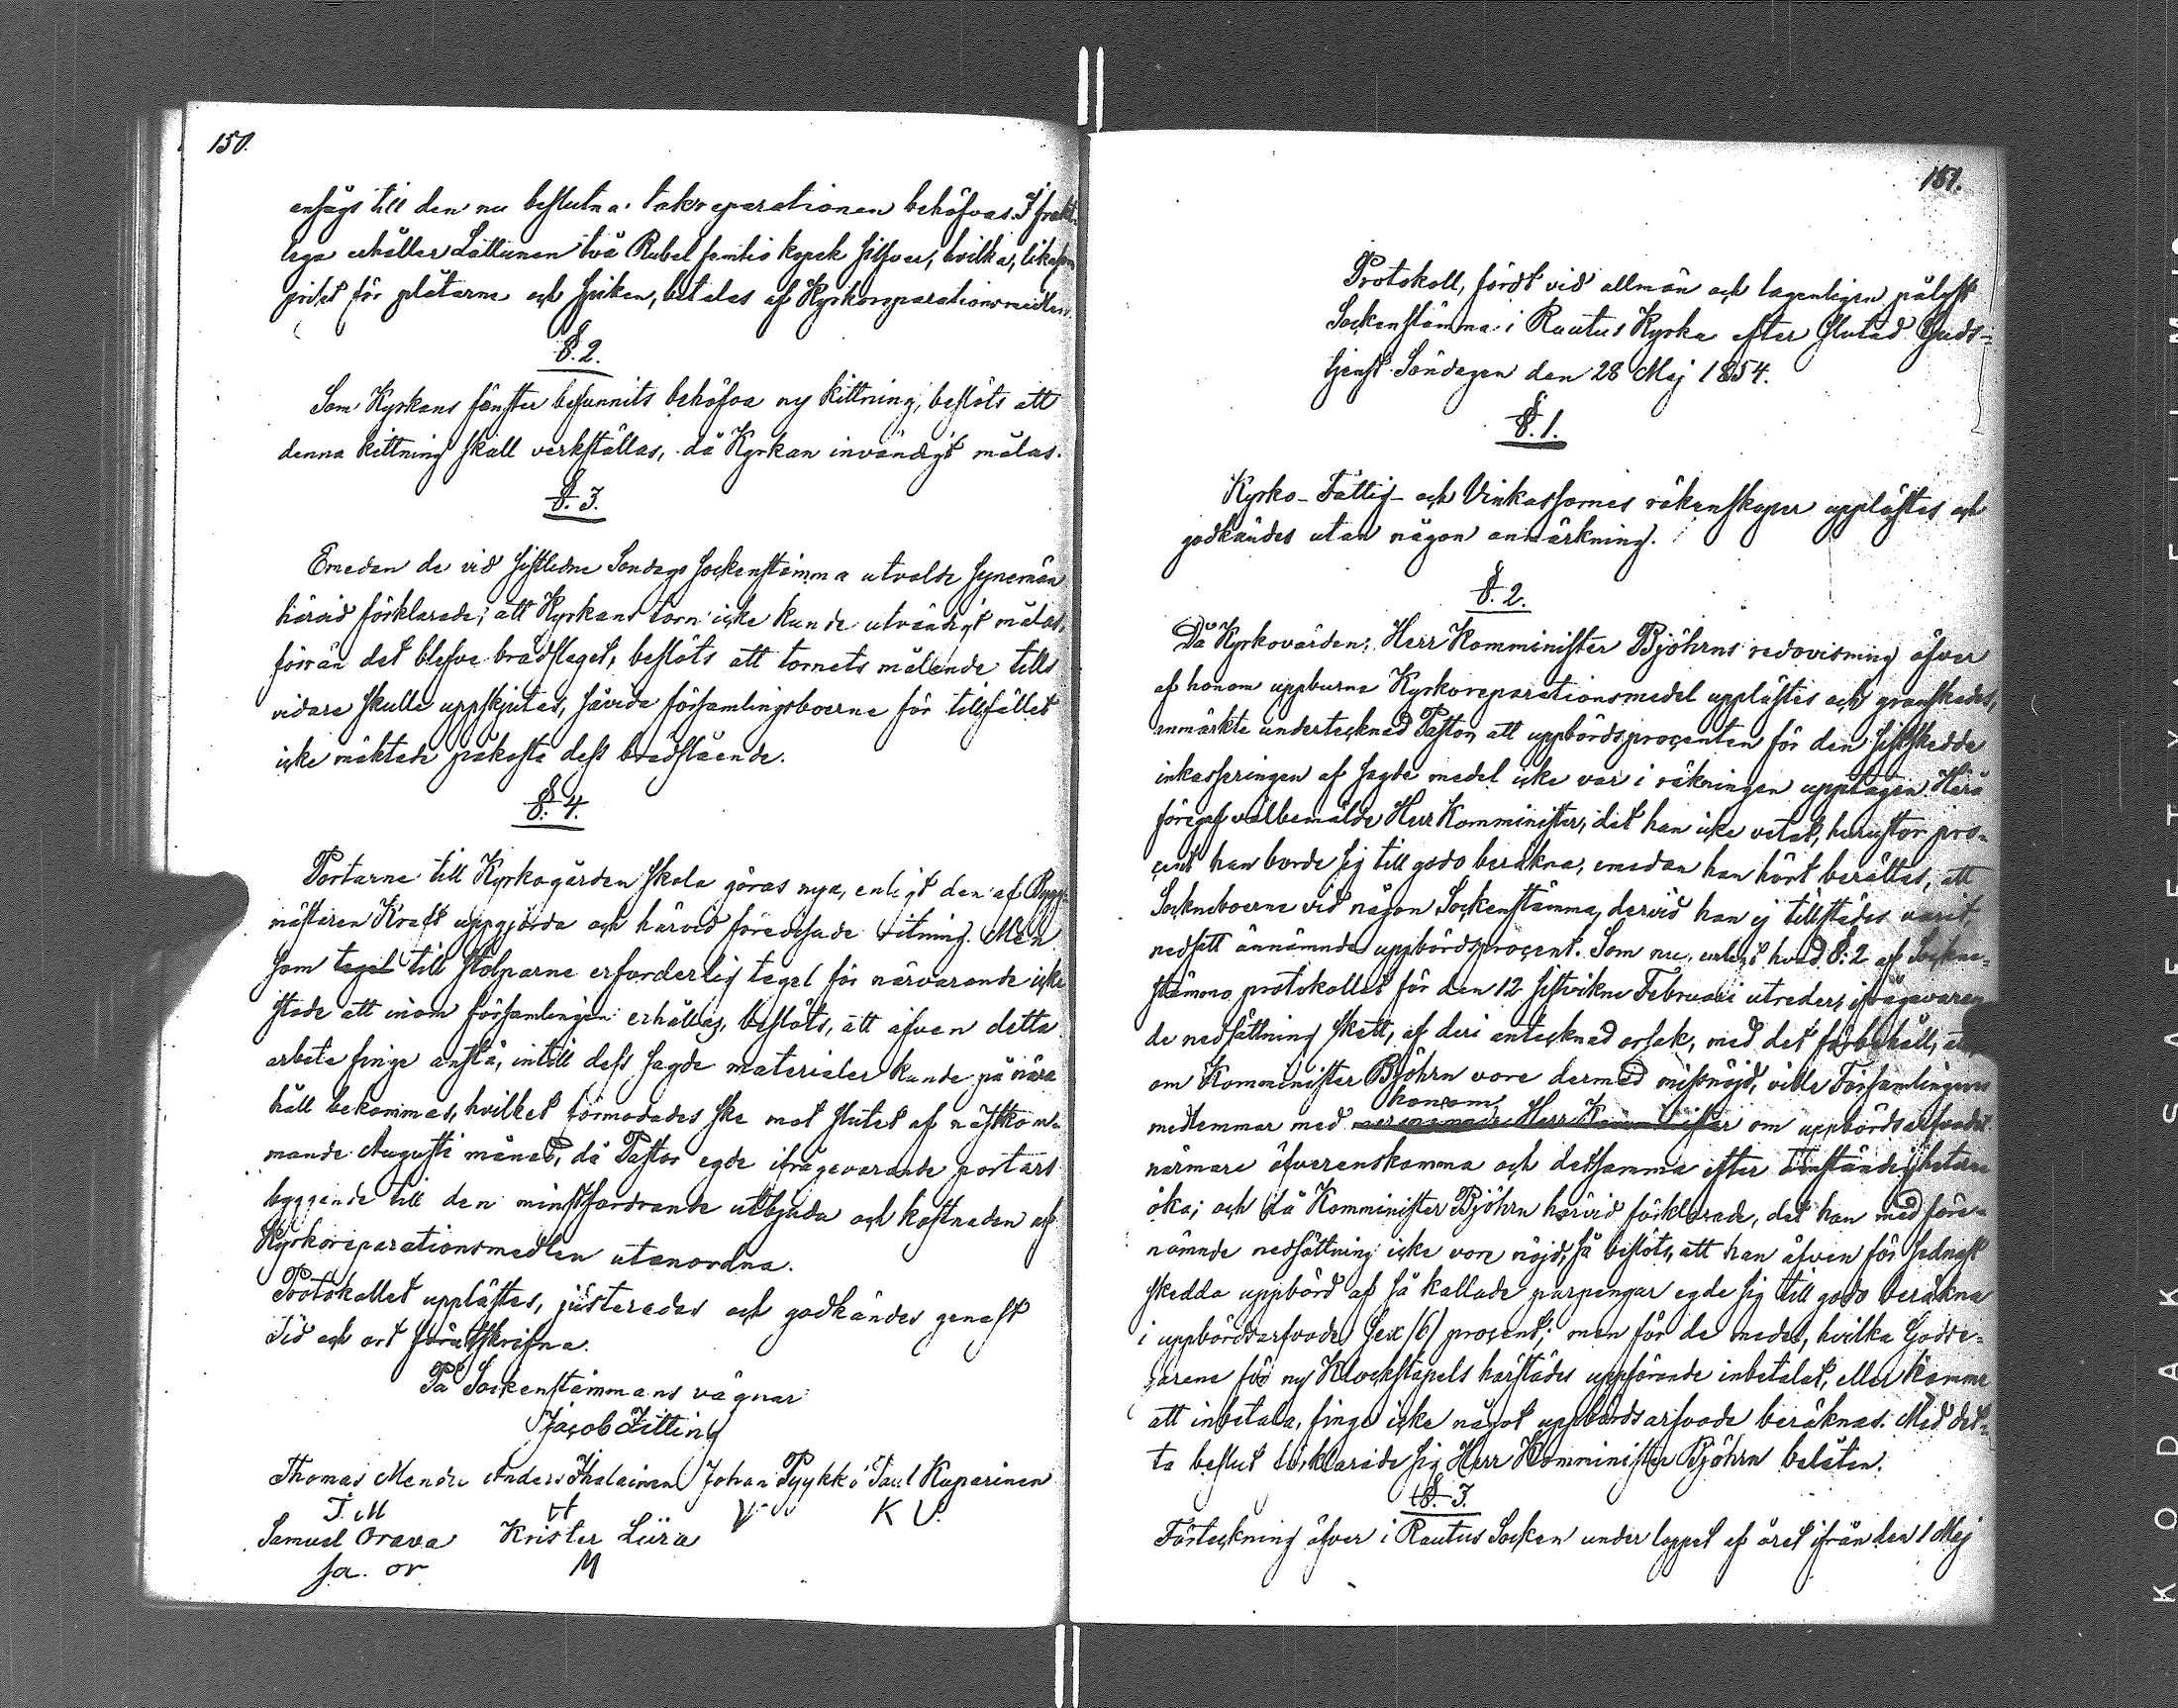 150.
ansågs till den nu beslutna takreparationen behöfvas. I frakt-
lega erhåller Lattunen två Rubel femtio kopek silfver, hvilka, likasom
priset för plåtarne och spiken, betalas af Kyrkoreparationsmedlen.
§. 2.
Som Kyrkans fönster befunnits behöfva ny kittning, beslöts att
denna kittning skall verkställas, då Kyrkan invändigt målas.
§. 3.
Emedan de vid sistledne Söndags sockenstämma utvalde synemän
härvid förklarade; att Kyrkans torn icke kunde utvändigt målas,
förrän det blefve brädslaget, beslöts att tornets målande tills
vidare skulle uppskjutas, såvida församlingsboerne för tillfället
icke mäktade påkosta dess brädslående.
§. 4.
Portarne till Kyrkogården skola göras nya, enligt den af Bygg-
mästaren Kraft uppgjorda och härvidföredessade ritning. Men
som tegel till stolparne erforderlig tegel för närvarande icke
stode att inom församlingen erhållas, beslöts, att äfven detta
arbete finge anstå, intill dess sagde materialer kunde på nära
håll bekommas, hvilket förmodades ske mot slutet af nästkom-
mande Augusti månad, då Pastor egde ifrågavarande portars
byggande till den minstfordrande utbjuda och kostnaden af
Kyrkoreparationsmedlen utanordna.
Protokollet upplästes, justerades och godkändes genast
Tid och ort förutskrifna.
På Sockenstämmans vägnar
Jacob Zitting
Thomas Mendu Anders Ihalainen Johan Pyykkö Paul Kuparinen
T. M K
Samuel Orava Krister Liira
Sa. or M
151.
Protokoll, fördt vid allmän och lagenligen pålyst
Sockenstämma i Rautus Kyrka efter slutad Guds-
tjenst Söndagen den 28 Maj 1854.
§. 1.
Kyrko- Fattig- och Vinkassornes räkenskaper upplästes och
godkändes utan någon anmärkning.
§. 2.
Då Kyrkovärden, Herr Komminister Bjöhrns redovisning öfver
af honom uppburna Kyrkoreparationsmedel upplästes och granskades,
anmärkte undertecknad Pastor, att uppbördsprocenten för den sistskedda
inkasseringen af sagde medel icke var i räkningen upptagen. Härå
föregaf välbemälde Herr Komminister, det han icke vetat, huru stor pro-
cent han borde sig till godo beräkna, emedan han hört berättas, att
Sockneboerne vid någon Sockenstämma, dervid han ej tillstädes varit,
nedsatt ännämnda uppbördsprocent. Som nu, enligt hvad §. 2 af Sockne-
stämmo protokollet för den 12 sistvikne Februari utreder, ifrågavaran-
de nedsättning skett, af deri antecknad orsak, med det förbehåll, att
om Komminister Bjöhrn vore dermed missnöjd, ville Församlingens
honom
medlemmar med Herr Komminister om uppbördsarfvodet
närmare öfverenskomma och detsamma efter omständigheterne
öka; och då Komminister Bjöhrn härvid förklarade, det han med före-
nämnde nedsättning icke vore nöjd, så beslöts, att han äfven för sednast
skedda uppbörd af så kallade parpengar egde sig till godo beräkna
i uppbördsarfvode sex (6) procent; men för de medel, hvilka Godse-
garene för ny Klockstapels härstädes uppförande inbetalat, eller komme
att inbetala, finge icke något uppbördsarfvode beräknas. Med det-
ta beslut förklarade sig Herr Komminister Bjöhrn belåten.
§. 3.
Förteckning öfver i Rautus Socken under loppet af året ifrån den 1 Maj
KODAK SAFETY FILM